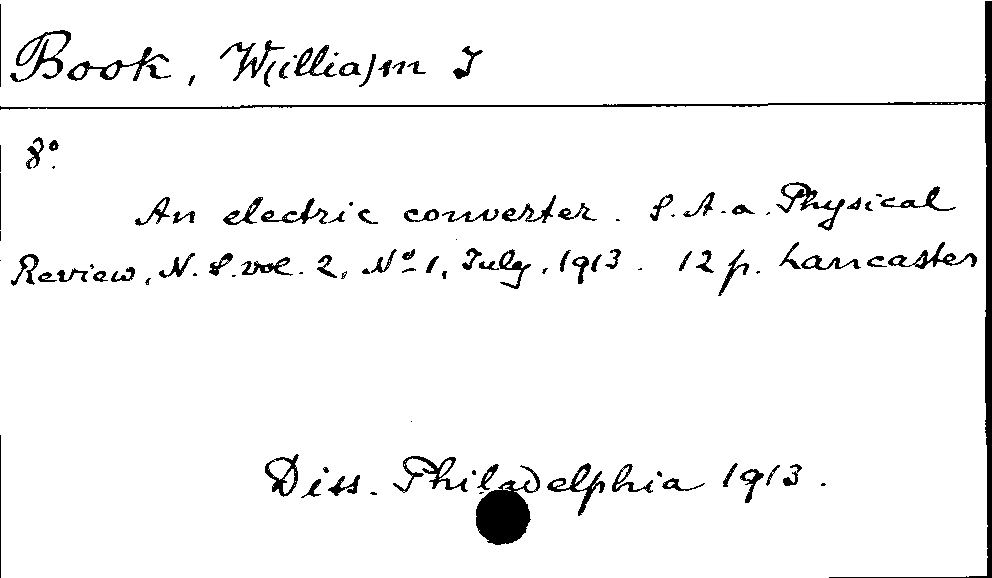 Book, W(illia)m J
8°.
An electric converter. S.A.a. Physical
Review, N.S. vol. 2, No 1, July, 1913. 12 p. Lancaster
Diss. Philadelphia 1913.